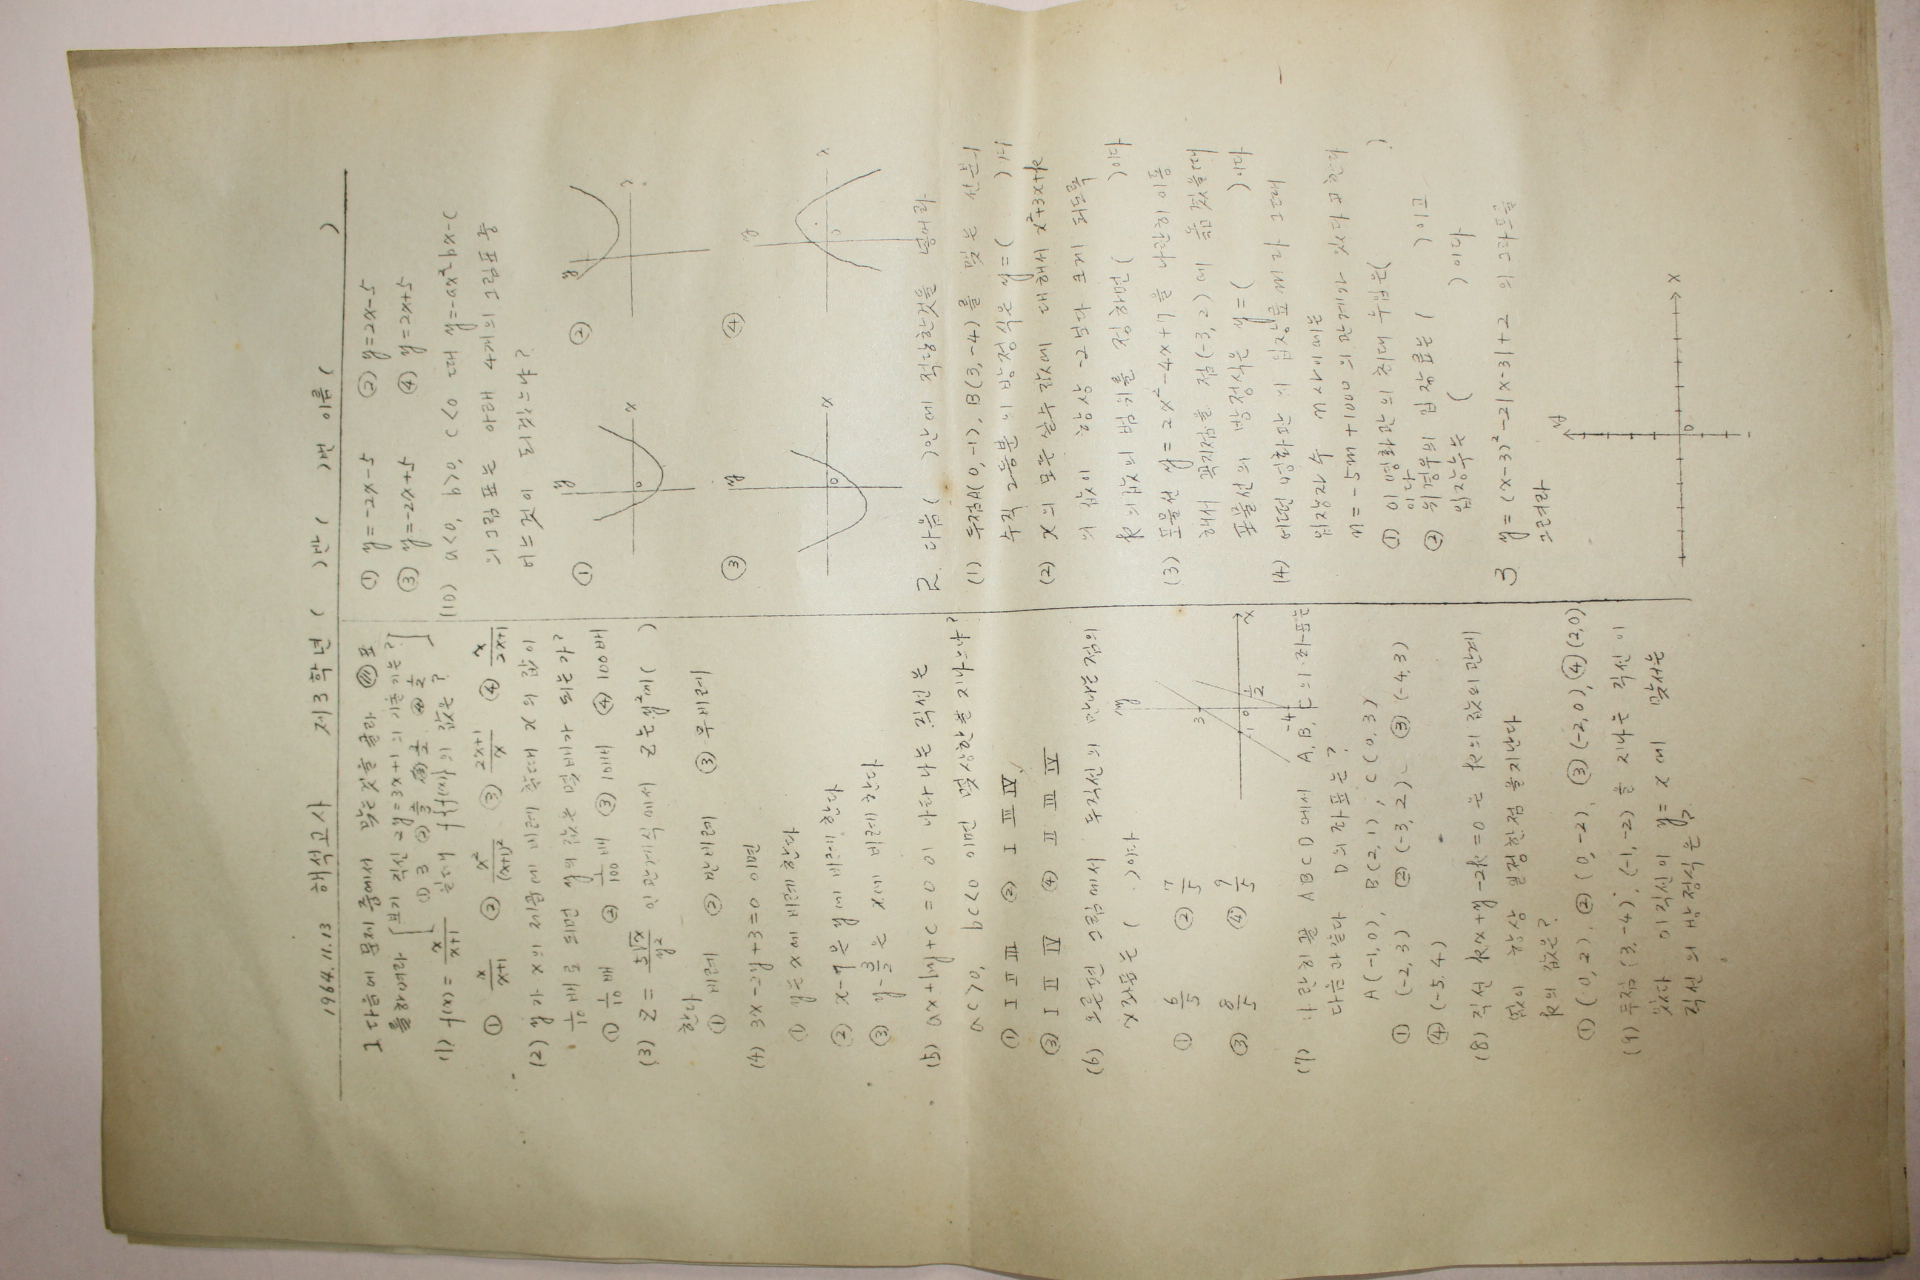 1964.11.13 해석고사 제3학년 ( )반 ( )번 이름 ( )
1 다음에 문제 중에서 맞는것을 골라 표
를 하여라 [보기 직선 2y=3x+1의 기울기는?
① 3 ② 2/3 ③ 3/2 ④ 1/2]
(1) f(x) = x/(x+1) 일때 f{f(x)}의 값은?
① x/(x+1) ② x²/(x+1)² ③ (2x+1)/x ④ x/(2x+1)
(2) y가 x의 제곱에 비례 할때 x의 값이
1/10배로 되면 y의 값은 몇배가 되는가?
① 1/10배 ② 1/100배 ③ 10배 ④ 100배
(3) Z = 5√x/y² 인 관계식에서 Z는 y²에 ( )
한다
① 비례 ② 반비례 ③ 무비례
(4) 3x-2y+3=0 이면
① y는 x에 비례한다
② x-7은 y에 비례한다
③ y-3/2은 x에 비례한다
(5) ax+by+c=0이 나타나는 직선은
ac>0, bc<0 이면 몇상한을 지나느냐?
① I II III ② I III IV
③ I II IV ④ II III IV
(6) 오른편 그림에서 두직선의 만나는 점의
x좌표는 ( )이다
① 6/5 ② 7/5
③ 8/5 ④ 9/5
y 3 -1 0 1/2 -4 x
(7) 나란히꼴 ABCD에서 A, B, C의 좌표는
다음과 같다 D의 좌표는?
A(-1,0), B(2,1), C(0,3)
① (-2,3) ② (-3,2) ③ (-4,3)
④ (-5,4)
(8) 직선 kx+y-2k=0은 k의 값의 관계
없이 항상 일정한점을 지난다
k의 값은?
① (0,2), ② (0,-2), ③ (-2,0), ④ (2,0)
(9) 두점 (3,-4), (-1,-2)를 지나는 직선이
있다 이직선이 y=x에 맞서는
직선의 방정식은?
① y=-2x-5 ② y=2x-5
③ y=-2x+5 ④ y=2x+5
(10) a<0, b>0, c<0 때 y=-ax²-bx-c
의 그림표는 아래 4개의 그림표 중
어느것이 되겠느냐?
① y 0 x ② y
③ y 0 x ④ y 0 x
2. 다음 ( )안에 적당한것을 넣어라
(1) 두점A(0,-1), B(3,-4)를 맺는 선분의
수직 2등분의 방정식은 y=( )이
(2) x의 모든 실수 값에 대해서 x²+3x+k
의 값이 항상 -2보다 크게 되도록
k의 값의 범위를 정하면 ( )이다
(3) 포물선 y=2x²-4x+7을 나란히이동
해서 꼭지점을 점(-3,2)에 옮겼을때
포물선의 방정식은 y=( )이다
(4) 어떤 영화관의 입장료 m과 그때
입장자수 n사이에는
n=-5m+1000의 관계가 있다고 한다
① 이 영화관의 최대 수입은( )
이다
② 위경우의 입장료는 ( )이고
입장수는 ( )이다
3 y=(x-3)²-2|x-3|+2의 그라프를
그려라
y 0 x